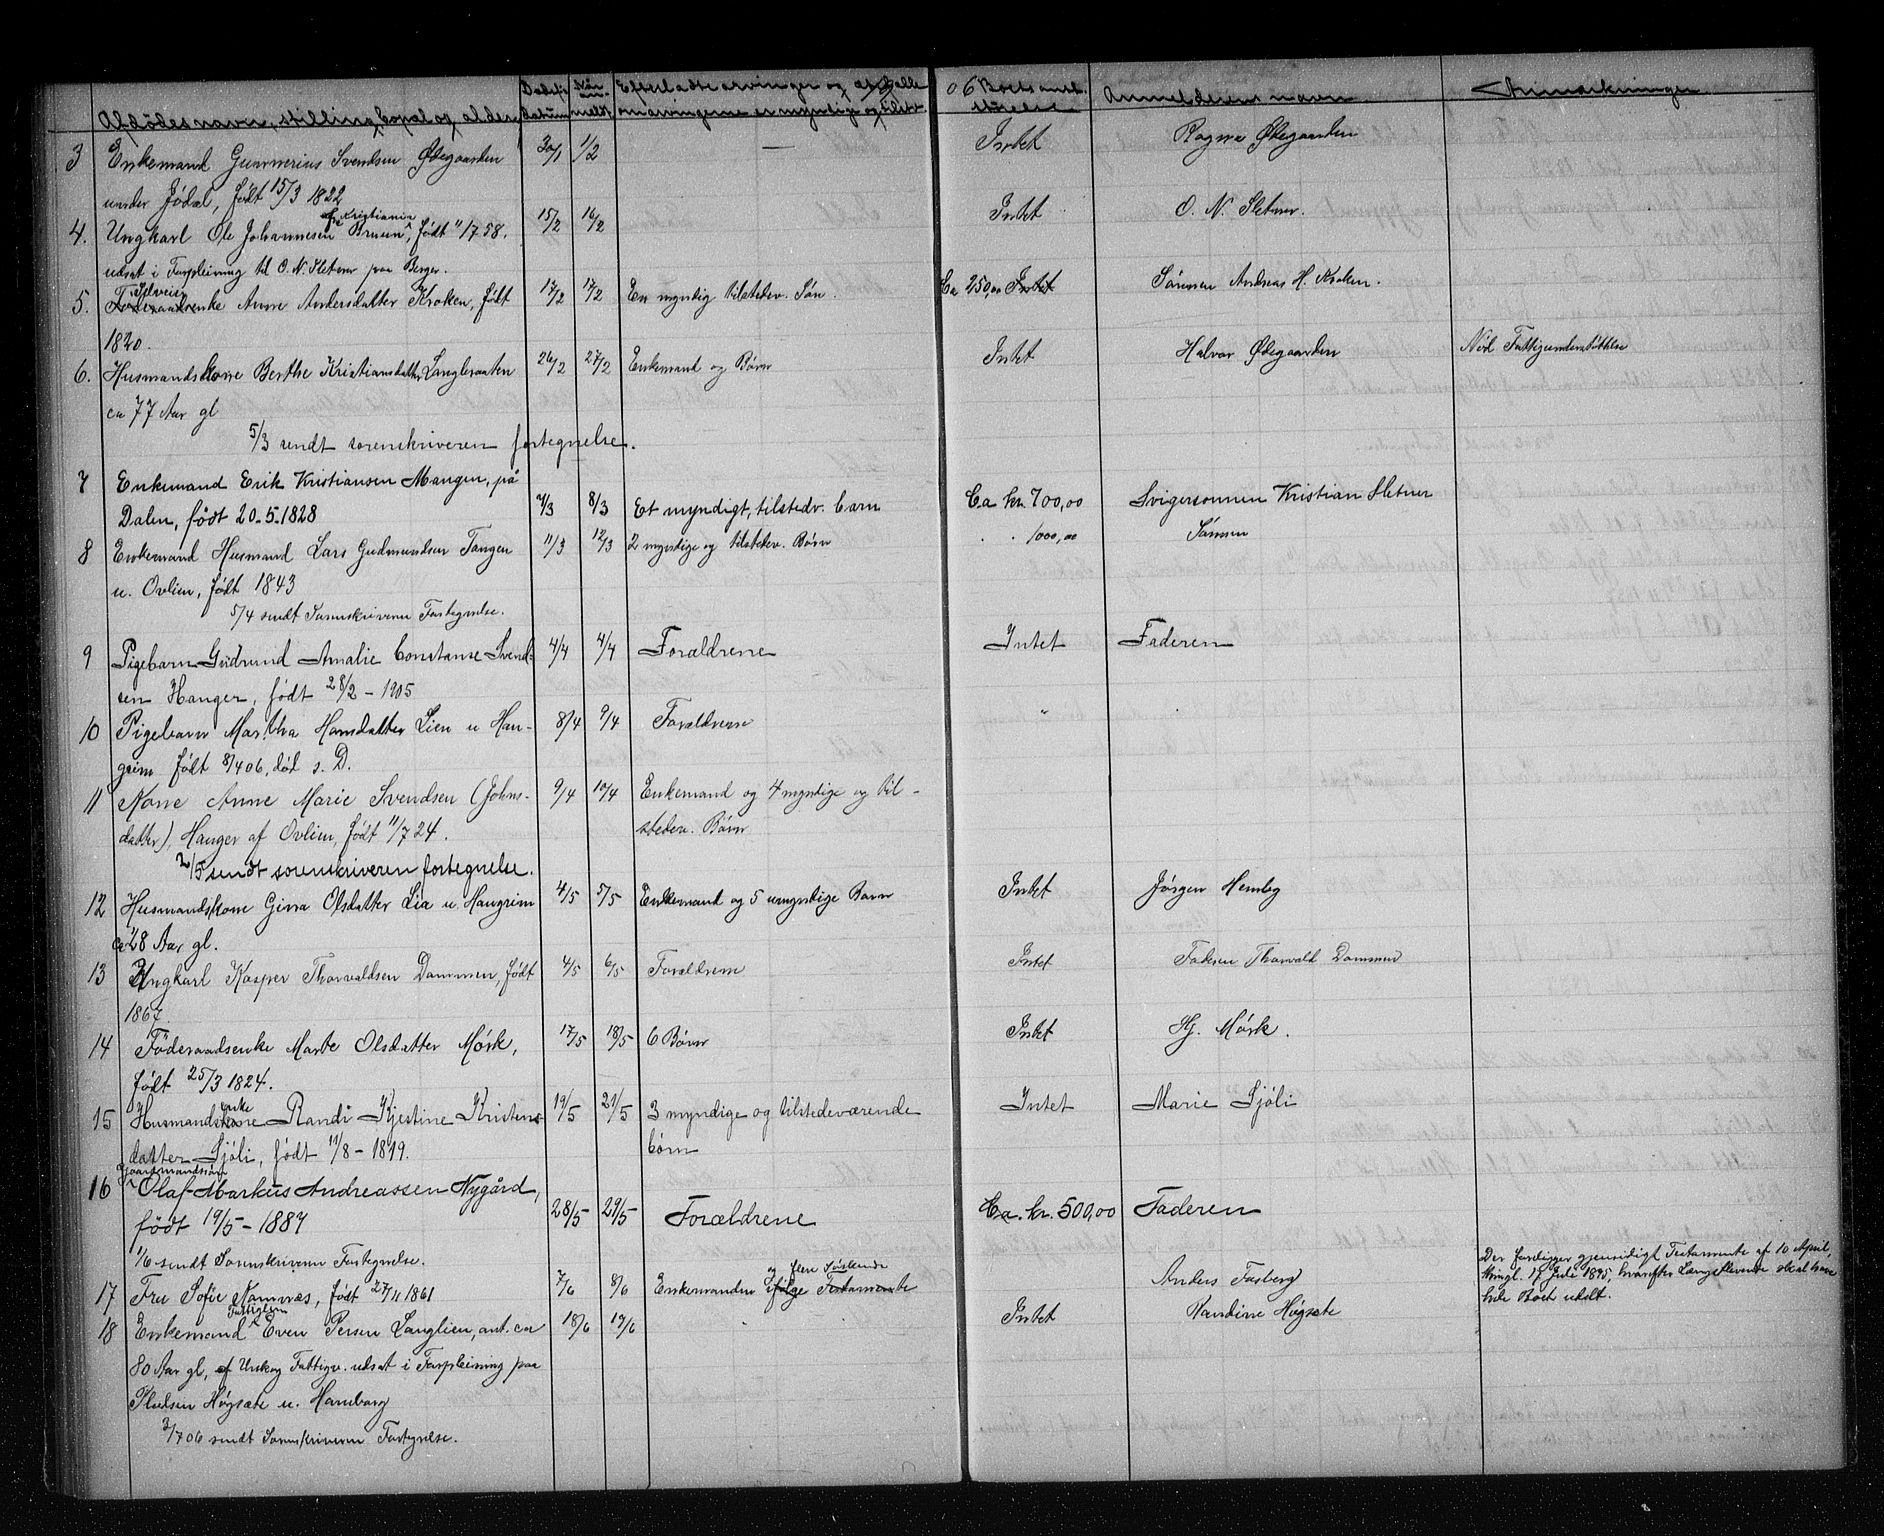 Afdødes navn, stilling, bopæl og alder. Dødsdatum Når anmeldt Efterladte arvinger og om arvingerne er myndige og tilst. 06 Boets ant. størrelse Anmelderens navn. Anmærkninger.
3 Enkemand Gunnerius Svendsen Ødegaarden 30/1 1/2 — Intet Ragna Ødegaarden
under Jødal, født 15/3 1822
4. Ungkarl Ole Johannesen Bruun af Kristiania, født "/7 58. 15/2 16/2 Intet O. N. Sletner.
udsat i Forpleining til O. N. Sletner paa Berger.
5. Selveierenke Anne Andersdatter Kroken, født 17/2 17/2 En myndig tilstedev. Søn. Ca 250,00 Intet Sønnen Andreas H. Kroken.
1820.
6. Husmandskone Berthe Kristiansdatter Langbraaten 26/2 27/2 Enkemand og Børn Intet Halvor Ødegaarden Nød Fattigunderstøttelse
ca 77 Aar gl
5/3 sendt sorenskriveren fortegnelse.
7 Enkemand Erik Kristiansen Mangen, på
Dalen, født 20-5-1828 7/3 8/3 Et myndigt, tilstedv. barn Ca kr. 700,00 Svigersønnen Kristian Sletner
8 Enkemand Husmand Lars Gudmundsen Tangen 11/3 12/3 2 myndige og tilstedev. Børn . . 1000,00 Sønnen
u. Ovlien, født 1843
5/4 sendt Sorenskriveren Fortegnelse.
9 Pigebarn Gudrund Amalie Constanse Svend- 4/4 4/4 Forældrene Intet Faderen
sen Hanger, født 28/2 - 1905
10 Pigebarn Martha Hansdatter Lien u Han- 8/4 9/4 Forældrene "
grim født 8/4 06, død s. D.
11 Kone Anne Marie Svendsen (Johns- 9/4 10/4 Enkemand og 4 myndige og til-
datter), Hanger af Ovlien, født 11/7 24. stedev. Børn
2/5 sendt sorenskriveren fortegnelse.
12 Husmandskone Gina Olsdatter Lia u. Hangrim 4/5 5/5 Enkemand og 5 umyndige Børn Intet Jørgen Hemby
ca 28 Aar gl.
13 Ungkarl Kasper Thorvaldsen Dammen, født 4/5 6/5 Forældrene Intet Faderen Thorvald Dammen
1867.
14 Föderaadsenke Marte Olsdatter Mørk, 17/5 18/5 6 Børn Intet Hj. Mørk.
født 25/3 1824.
15 Husmandsenke Randi Kjestine Kristens- 19/5 21/5 3 myndige og tilstedeværende Intet Marie Sjøli
datter Sjøli, født 11/8 - 1819. børn
Gaardmandssøn
16 Olaf Markus Andreassen Nygård,
født 19/5 - 1887 28/5 29/5 Forældrene Ca. kr. 500,00 Faderen
1/6 sendt Sorenskriveren Fortegnelse.
17 Fru Sofie Namnæs, født 27/11 1861 7/6 8/6 Enkemanden og flere Søskende ifølge Testamente Anders Fosberg Der foreligger gjensidigt Testamente af 10 April,
thingl. 17 Juli 1895, hvorefter Længstlevende skal have
hele Boet udelt.
18 Enkemand Fattiglem Even Persen Langlien, ant. ca 18/6 19/6 Intet Randine Høgsæte
80 Aar gl, af Urskog Fattigv. udsat i Forpleining paa
Pladsen Høgsæte u. Haneborg
3/7 06 sendt Sorenskriveren Fortegnelse.